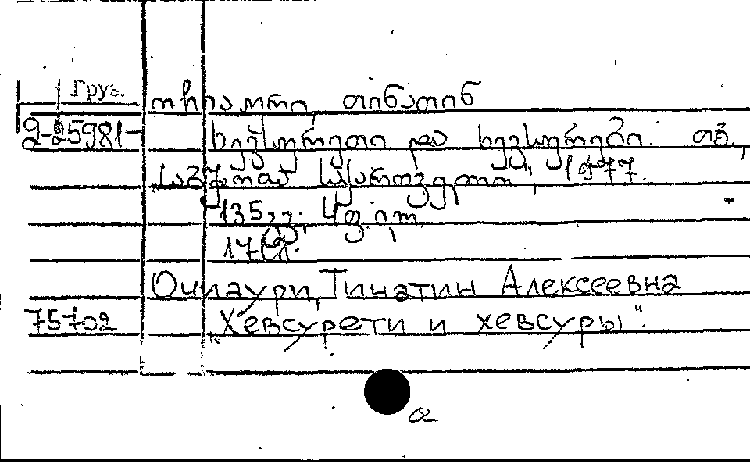 Груз.
ოჩიაური, თინათინ
2-25981- ხევსურეთი და ხევსურები. თბ.,
„საბჭოთა საქართველო", 1977.
135 გვ; 4 ფ. ილ.
Очиаури, Тинатин Алексеевна
75702 „Хевсурети и хевсуры".
а